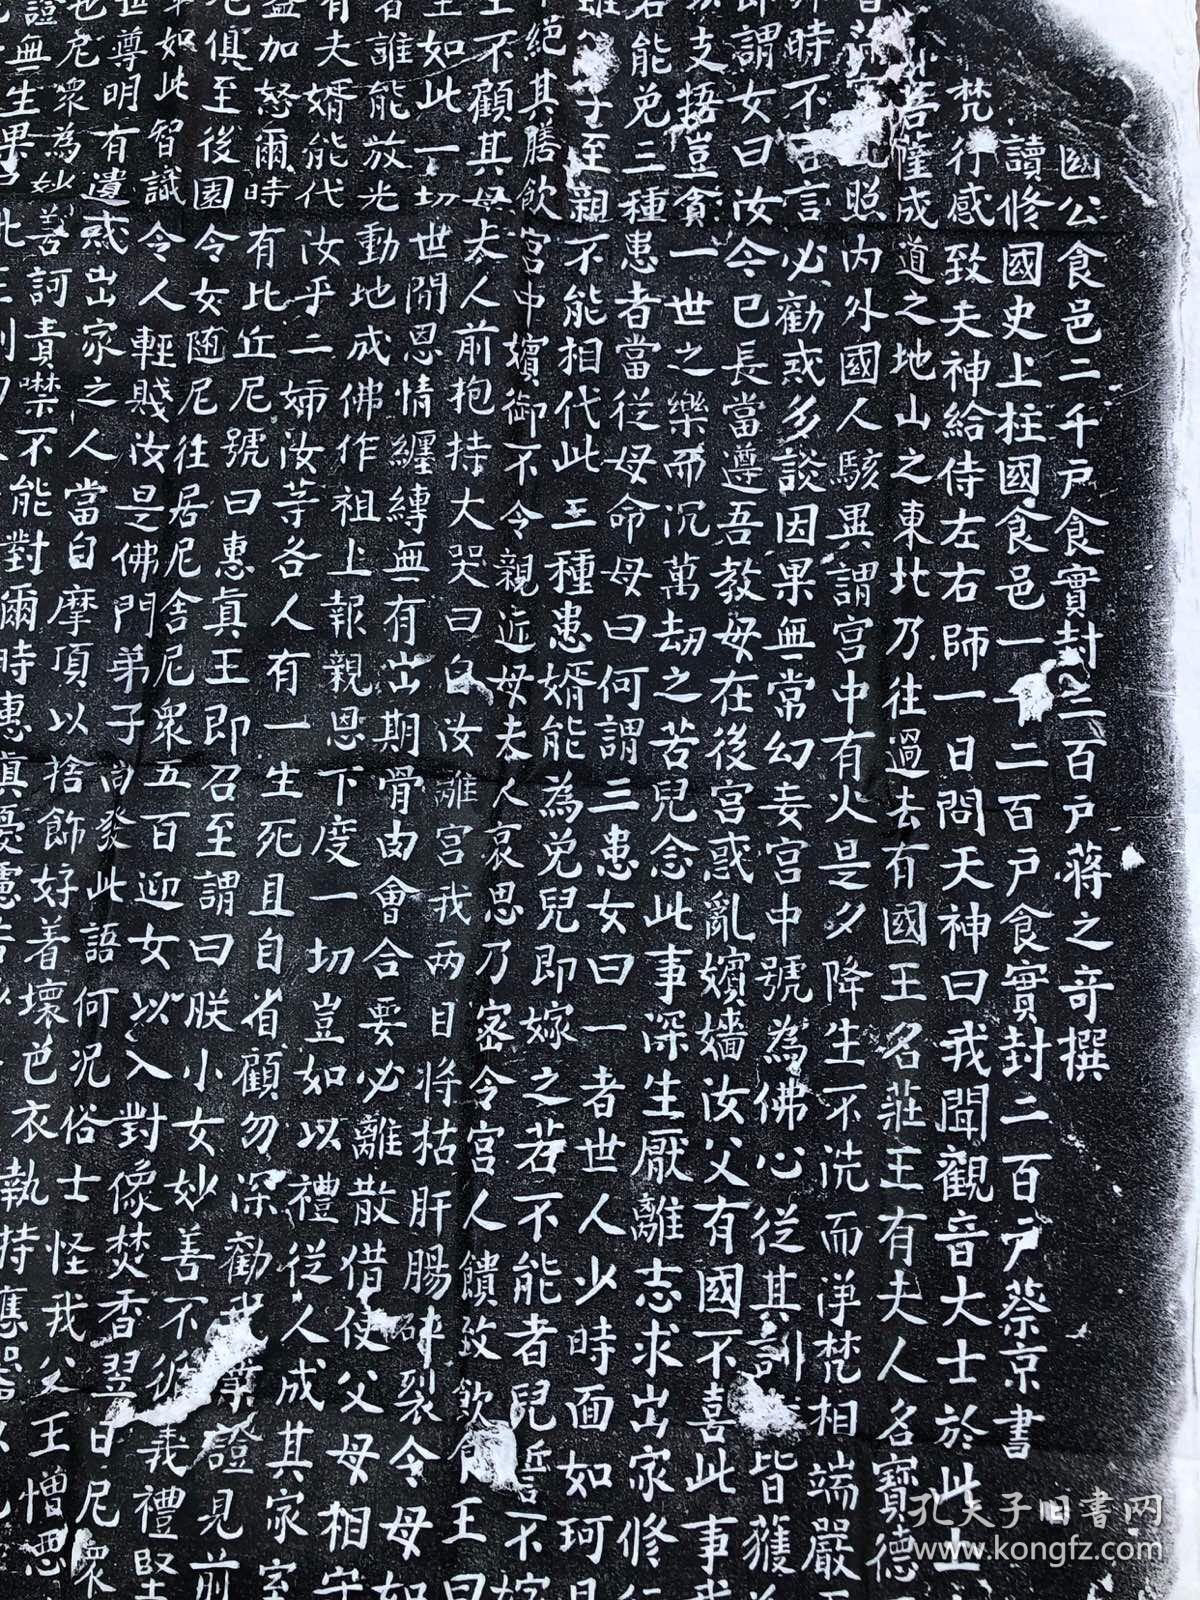 國公食邑二千戶食實封三百戶蔣之奇撰
讀修國史上柱國食邑一千二百戶食實封二百戶蔡京書
梵行感致夫神給侍左右師一日問天神曰我聞觀音大士於此土
菩薩成道之地山之東北乃往過去有國王名莊王有夫人名寶德
照內外國人駭異謂宮中有火是夕降生不洗而淨梵相端嚴
時不言言必勸戒多談因果無常幻妄宮中號為佛心從其訓皆獲
即謂女曰汝今已長當遵吾教毋在後宮惑亂嬪嬙汝父有國不喜此事
支捂豈貪一世之樂而沉萬劫之苦兒念此事深生厭離志求出家修行
若能免三種患者當從母命母曰何謂三患女曰一者世人少時面如珂
子至親不能相代此三種患婿能為免兒即嫁之若不能者兒誓不嫁
絕其膳飲宮中嬪御不令親近母夫人哀思乃密令宮人饋致飲食王曰
王不顧其母夫人前抱持大哭曰自汝離宮我两目將枯肝腸碎裂令母如
王如此一切世間恩情纏縛無有出期骨肉會合要必離散借使父母相守
者誰能放光動地成佛作祖上報親恩下度一切豈如以禮從人成其家室
有夫婿能代汝乎二姉汝等各人有一生死且自省顧勿深勸業證見前
益加怒爾時有比丘尼號曰惠真王即召至謂曰朕小女妙善不循義禮堅
俱至後園令女随尼往居尼舍尼衆五百迎女以入對像焚香翌日尼衆
如此智識令人輕賤汝是佛門弟子尚發此語何況俗士怪我父王憎惡
世尊明有遺戒出家之人當自摩頂以捨飾好着壞色衣執持應器
尼衆為妙善訶責噤不能對爾時惠真憂慮
證無生果
孔夫子旧书网
www.kongfz.com